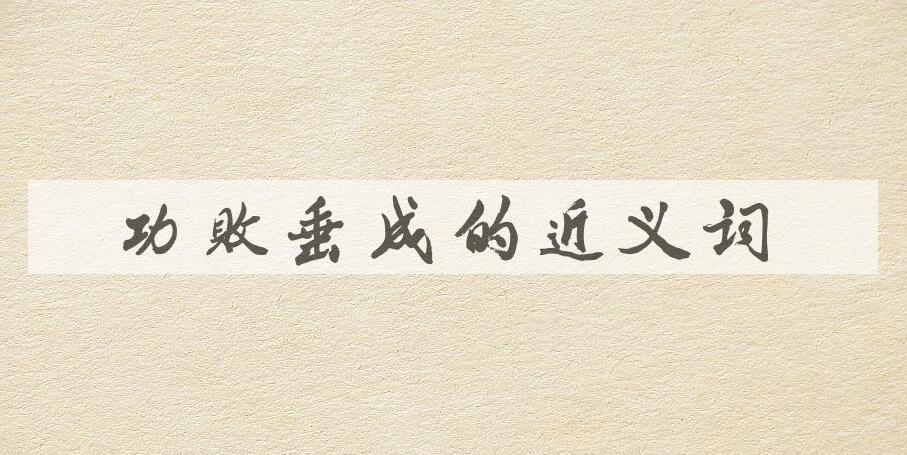 功败垂成的近义词